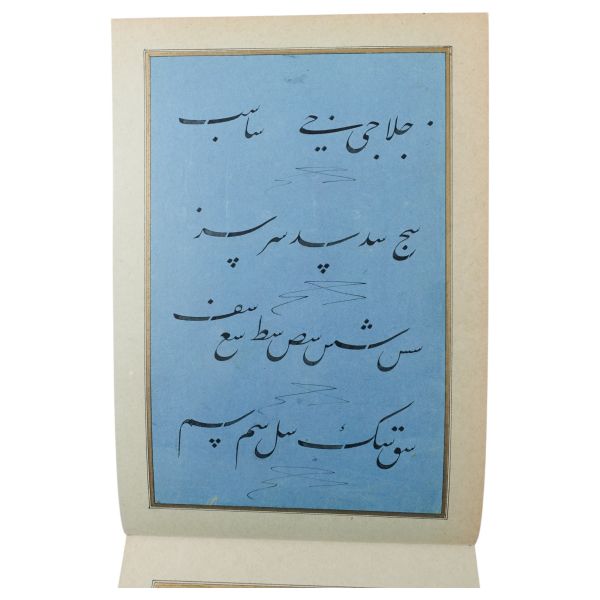 جلا جی سا سب
سج سد سد سر سر
سس سس سص سط سع سف
سق سک سل سم سم